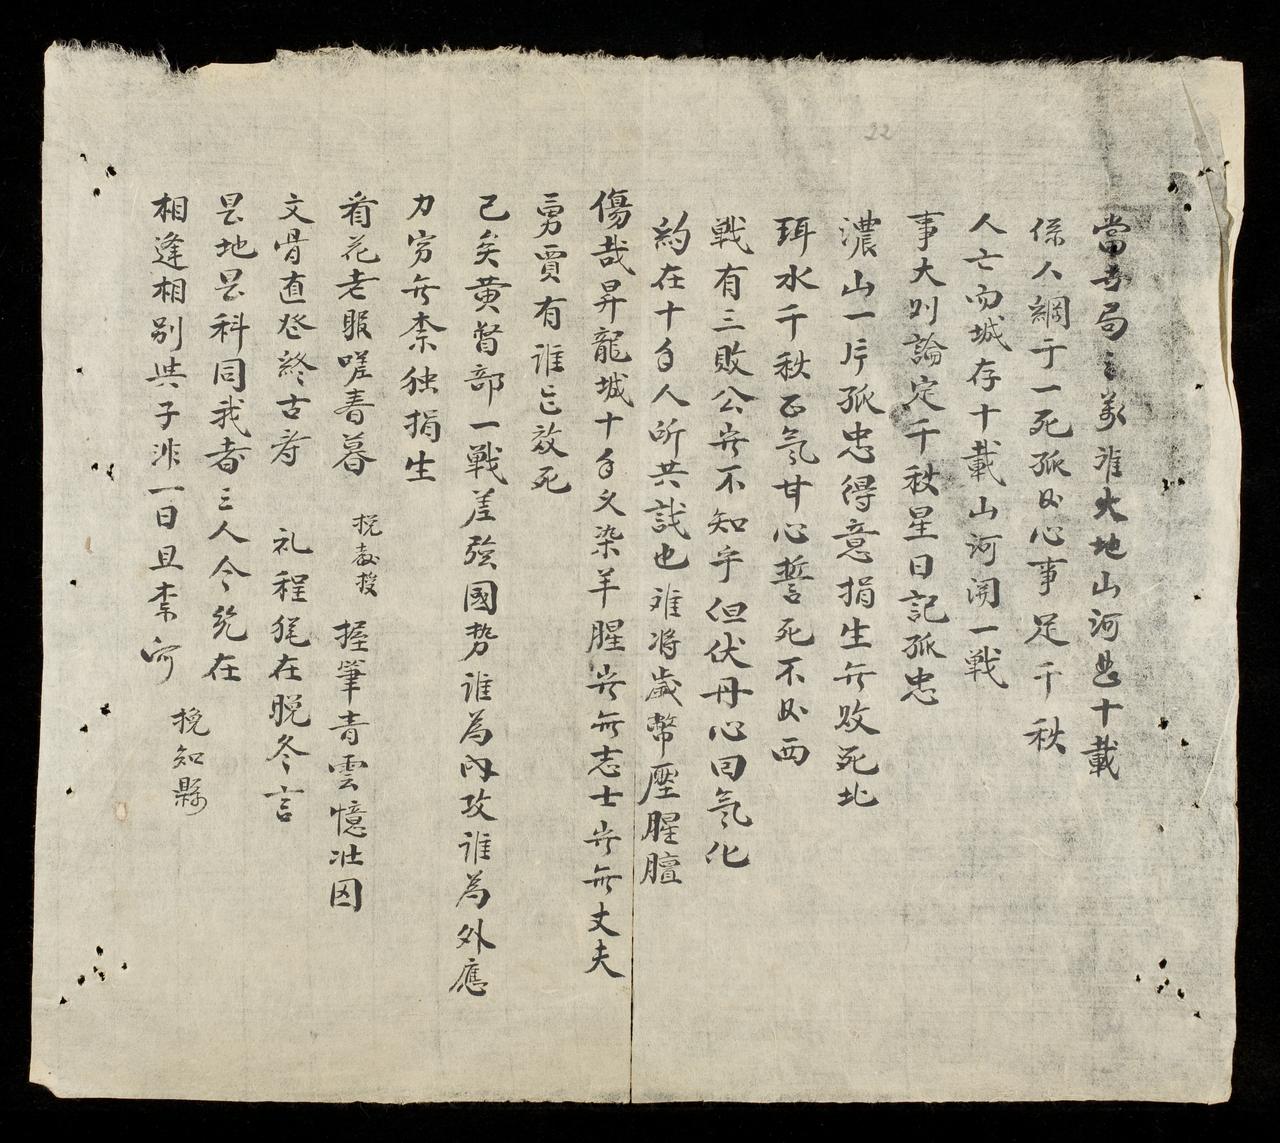 當去局之義誰大地山河悲十載
係人綱于一死孤臣心事足千秩
人亡而城存十載山河開一戰
事大則論定千秩星日記孤忠
濃山一片孤忠得意捐生無敗死北
珥水千秩正氣甘心誓死不臣西
戰有三敗公岂不知乎但伏丹心回氣化
約在十年人所共誠也难将歲幣壓腥膻
傷哉昇龍城十年又染羊腥岂無志士岂無丈夫
勇賈有誰忘效死
已矣黃督部一戰差強國势誰為內攻誰為外應
力窮無柰独捐生
看花老眼嗟春暮 挽教授 握筆青雲憶壮因
文骨直登終古夸 礼程尾在脫冬言
是地是科同我者三人今競在
相逢相别與子洋一日且柰何 挽知縣
22